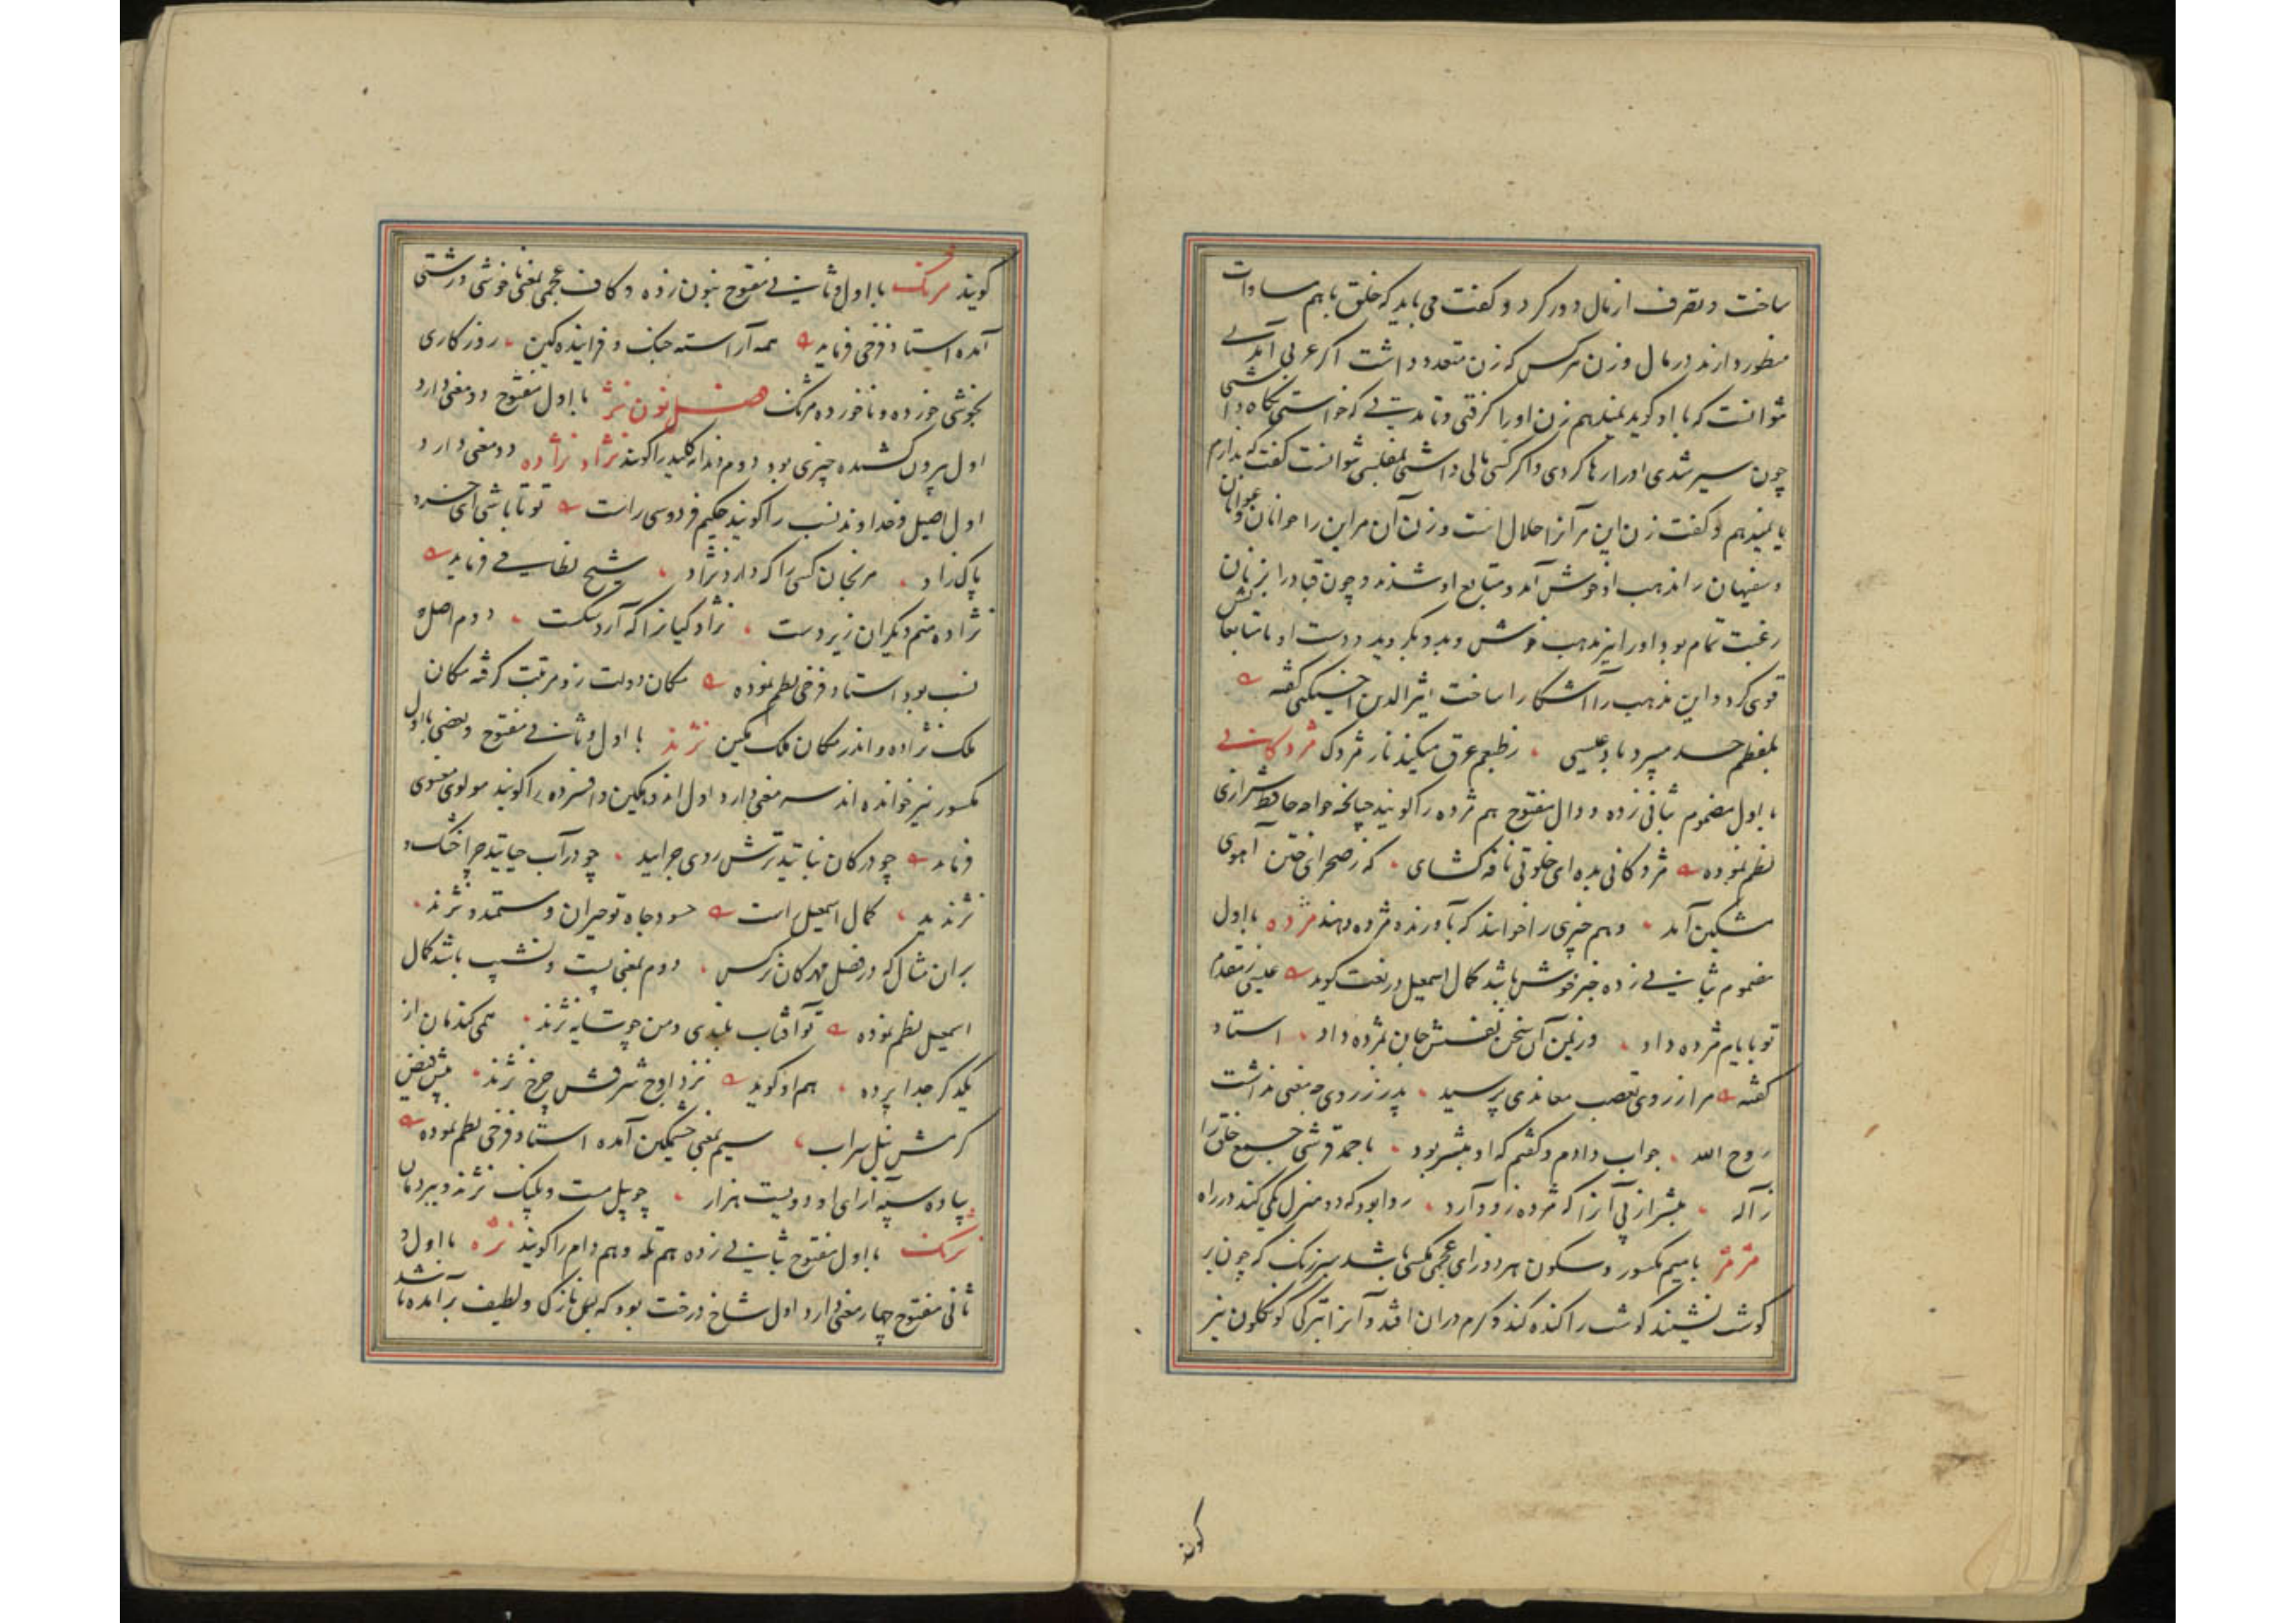 ساخت و تصرف از مال دور کرد و گفت می باید که خلق با هم مساوات
منظور دارند در مال و زن هر کس که زن متعدد داشت اگر عزبی آمدی
توانست که با او گوید یا زن او را گرفتی و تا مدتی که خواستی نگاه داشتی
چون سیر شدی او را رها کردی و اگر کسی مالی داشتی مفلسی توانست گفت که بدارم
یا نمیدهم و گفت زن این مر آنرا حلال است و زن آن مر این را جوانان و عوانان
و سفیهان را مذهب او خوش آمد و متابع او شدند و چون قباد را بزنان
رغبت تمام بود او را نیز مذهب خوش و بدو بگروید و دست او با متابعانش
قوی کرد و این مذهب را آشکارا ساخت اثیرالدین اخسیکتی گفته
بلفظم حسد میبرد باد عیسی ز طبعم عرق میکند نار مژدک مژدکانی
با اول مضموم بثانی زده و دال مفتوح هم مژده را گویند چنانچه خواجه حافظ شیرازی
نظم نموده مژدکانی بده ای خلوتی نافه کشای که ز صحرای ختن آهوی
مشکین آمد و هم چیزی را خوانند که بآورنده مژده دهند مژده با اول
مضموم بثانی زده خبر خوش باشد کمال اسمعیل در نعت گوید عیسی ز مقدم
تو بایام مژده داد وز یمن آن سخن نفسش جان بمرده داد استاد
گفته مرا ز روی تعصب معاندی پرسید پدر ز روی چه معنی نداشت
روح الله جواب دادم و گفتم که او مبشر بود با حمد قرشی جمیع خلق را
ز آله مبشر از پی آنرا که مژده زود آرد روا بود که دو منزل یکی کند در راه
مژمژ با میم مکسور و سکون هر دو زای عجمی مگسی باشد سبز رنگ که چون بر
گوشت نشیند گوشت را گنده کند و کرم دران افتد و آنرا بترکی کوکلون نیز
گویند
گویند مژنک با اول و ثانی مفتوح بنون زده و کاف عجمی بمعنی ناخوشی و زشتی
آمده استاد فرخی فرماید همه آراسته جنگ و فزاینده کین روزگاری
بخوشی خورده و ناخورده مژنک فصل نون نژ با اول مفتوح دو معنی دارد
اول بیرون کشیده چیزی بود دوم دندانه کلید را گویند نژاد نژاده دو معنی دارد
اول اصیل و خداوند نسب را گویند حکیم فردوسی راست تو تا باشی ای خسرو
پاک زاد مرنجان کسی را که دارد نژاد شیخ نظامی فرماید
نژاده منم دیگران زیر دست نژاد کیانرا که آرد شکست دوم اصل و
نسب بود استاد فرخی نظم نموده مکان دولت زو مرتبت گرفته مکان
ملک نژاده و اندر مکان ملک مکین نژند با اول و ثانی مفتوح و بعضی با اول
مکسور نیز خوانده اند سه معنی دارد اول اندوهگین و افسرده را گویند مولوی معنوی
فرماید چو در کان نباتید ترش روی چرایید چو در آب حیاتید چرا خشک و
نژندید کمال اسمعیل راست حسود جاه تو حیران و مستمند و نژند
بر آن مثال که در فصل مهرکان نرکس دوم بمعنی پست و نشیب باشد کمال
اسمعیل نظم نموده تو آفتاب بلندی و من چو سایه نژند همی کندمان از
یکدگر جدا پرده هم او گوید نزد اوج شرفش چرخ نژند پیش فیض
کرمش نیل سراب سیم بمعنی خشمگین آمده استاد فرخی نظم نموده
پیاده سپه آرای او دویست هزار چو پیل مست و پلنک نژند و ببر دمان
نژنک با اول مفتوح بثانی زده هم تله و هم دام را گویند نژه با اول و
ثانی مفتوح چهار معنی دارد اول شاخ درخت بود که بس نازک و لطیف بر آمده باشد